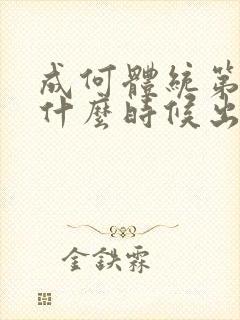 成何體統第
什麼時候出
金鉄霖